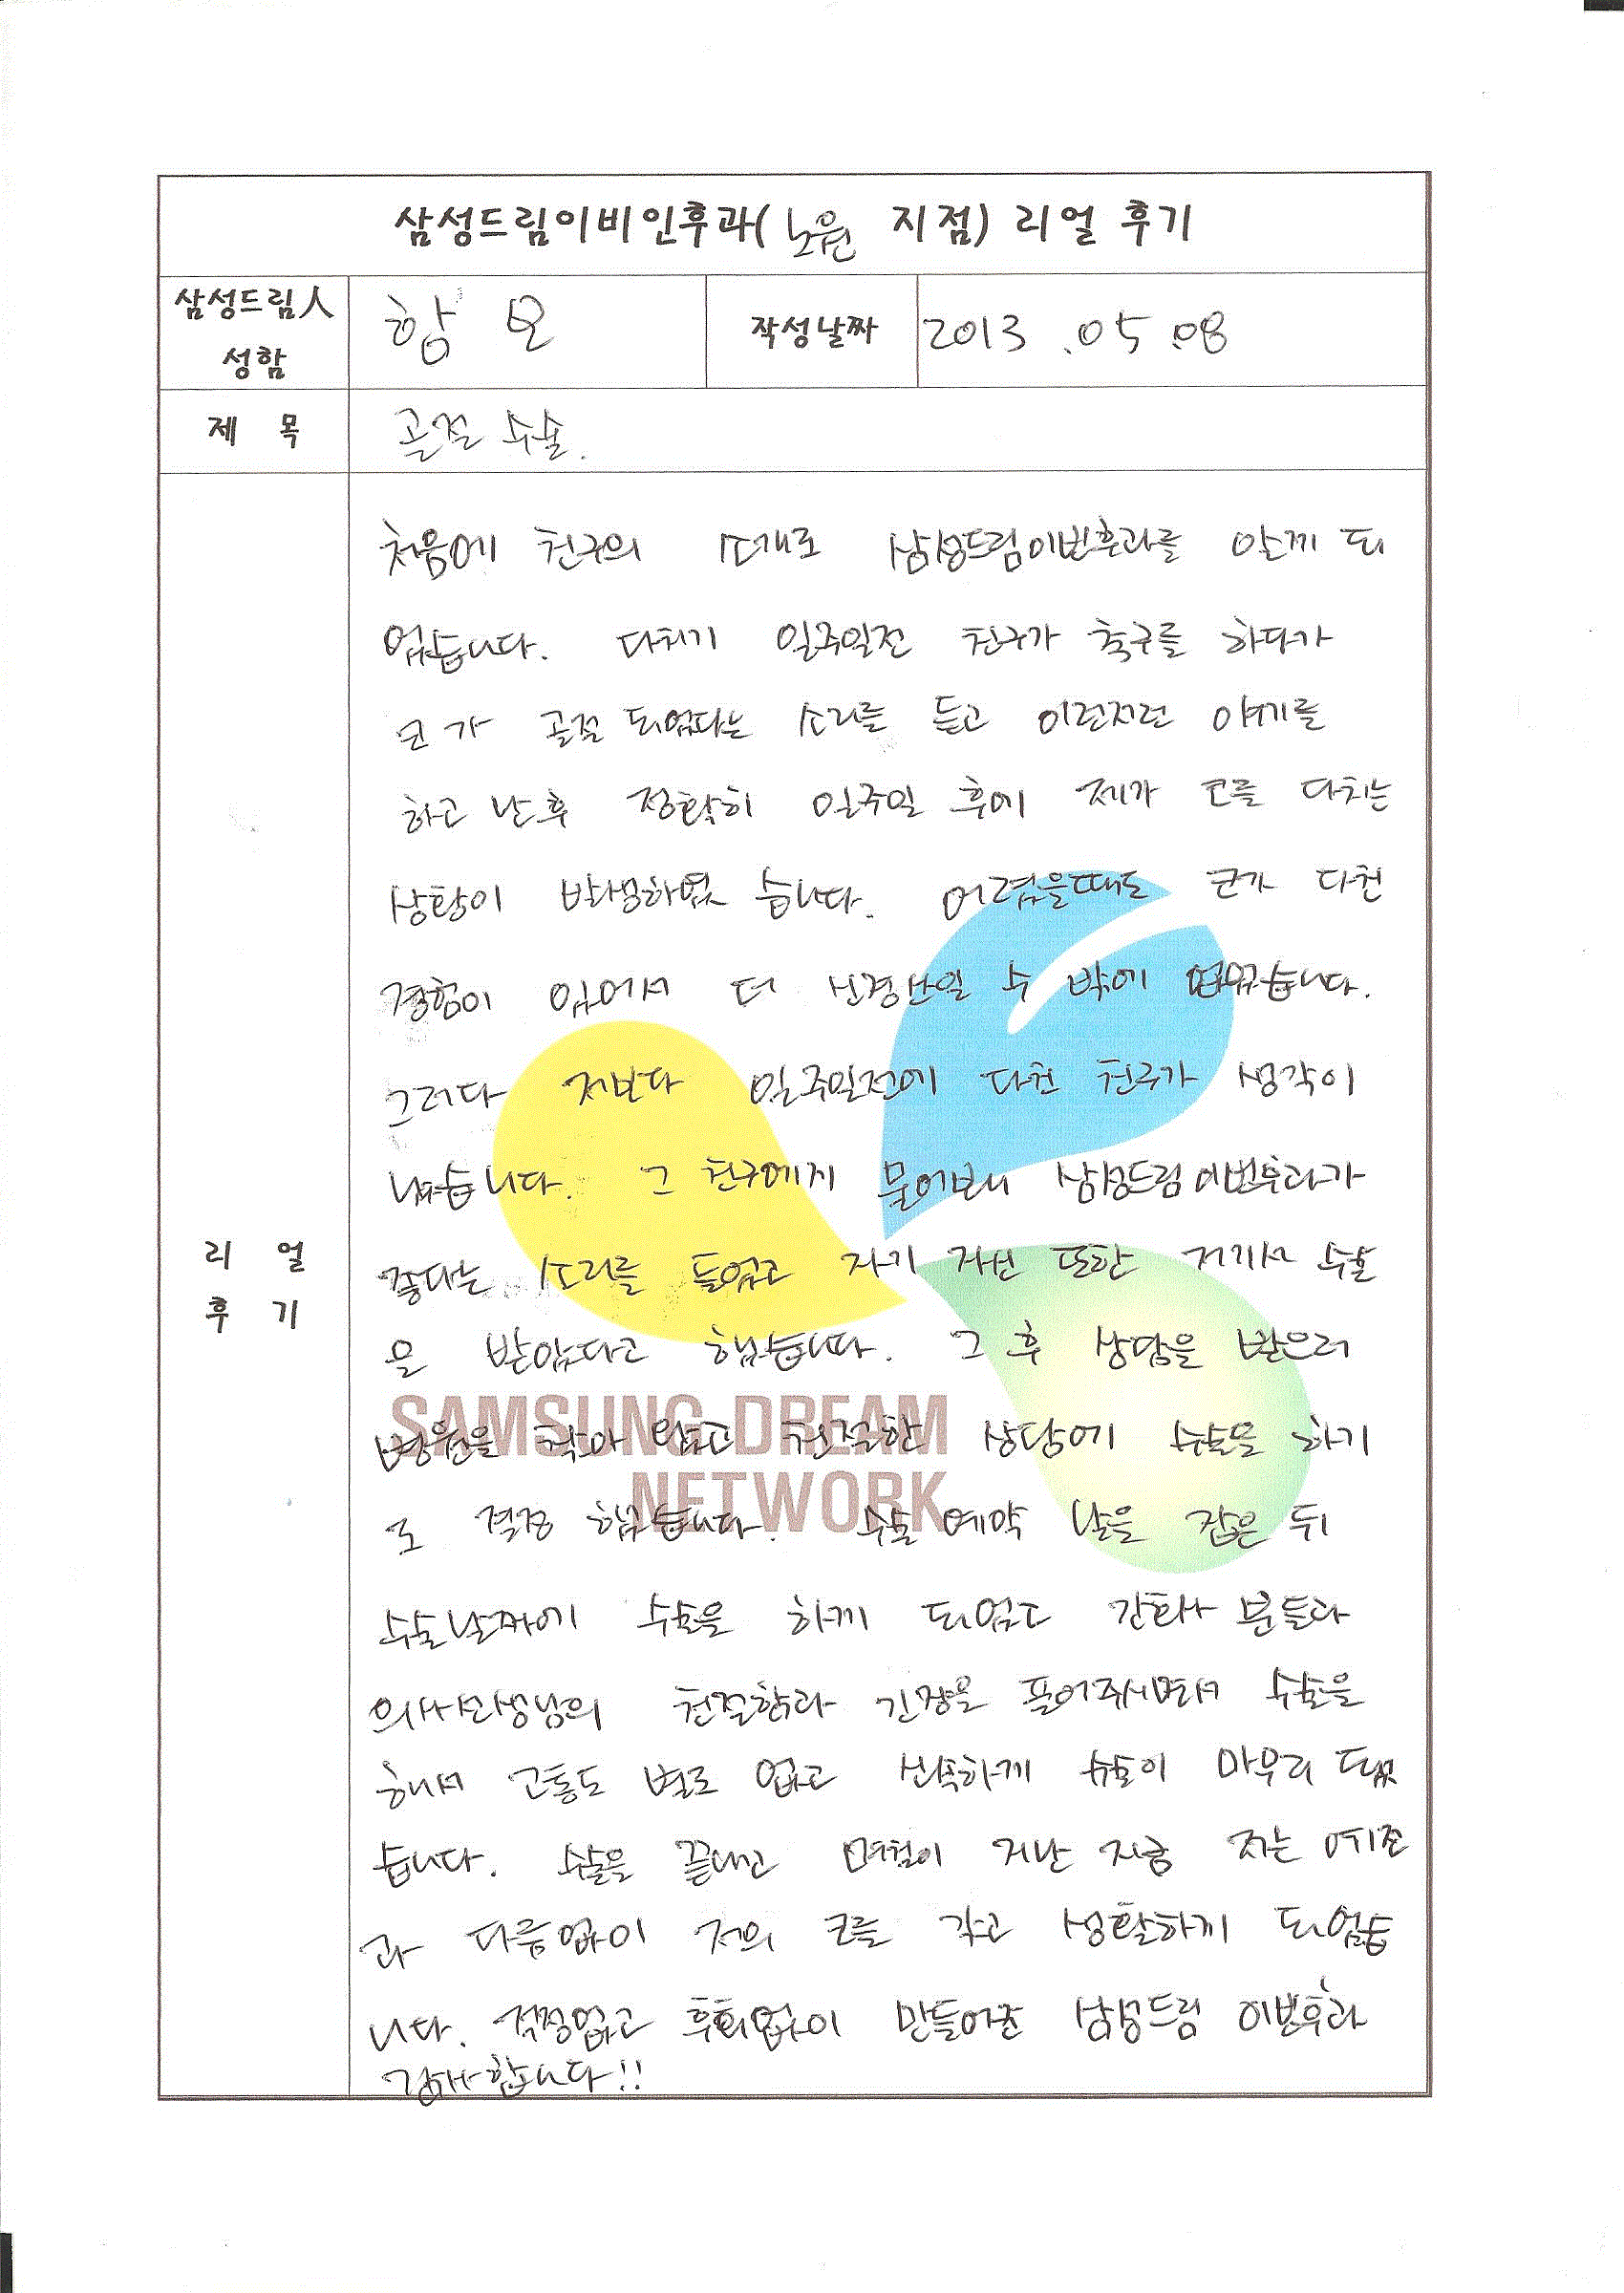 삼성드림이비인후과(노원 지점) 리얼 후기
삼성드림人 성함
함 모
작성날짜
2013.05.08
제 목
골절 수술.
리 얼 후 기
처음에 친구의 소개로 삼성드림이빈후과를 알게 되
었습니다. 다치기 일주일전 친구가 축구를 하다가
코가 골절 되었다는 소리를 듣고 이런저런 얘기를
하고 난 후 정확히 일주일 후에 제가 코를 다치는
상황이 발생하였습니다. 어렸을때도 코가 다친
경험이 있어서 더 신경쓰일 수 밖에 없었습니다.
그러다 저보다 일주일전에 다친 친구가 생각이
났습니다. 그 친구에게 물어보니 삼성드림이빈후과가
좋다는 소리를 들었고 자기 자신 또한 거기서 수술
을 받았다고 했습니다. 그 후 상담을 받으러
병원을 찾아 왔고 친절한 상담에 수술을 하기
로 결정 했습니다. 수술 예약 날을 잡은 뒤
수술날짜에 수술을 하게 되었고 간호사 분들과
의사선생님의 친절함과 긴장을 풀어주시면서 수술을
해서 고통도 별로 없고 신속하게 수술이 마무리 되었
습니다. 수술을 끝내고 며칠이 지난 지금 저는 예전
과 다름없이 저의 코를 갖고 생활하게 되었습
니다. 걱정없고 후회없이 만들어준 삼성드림 이빈후과
감사합니다!!
SAMSUNG DREAM
NETWORK